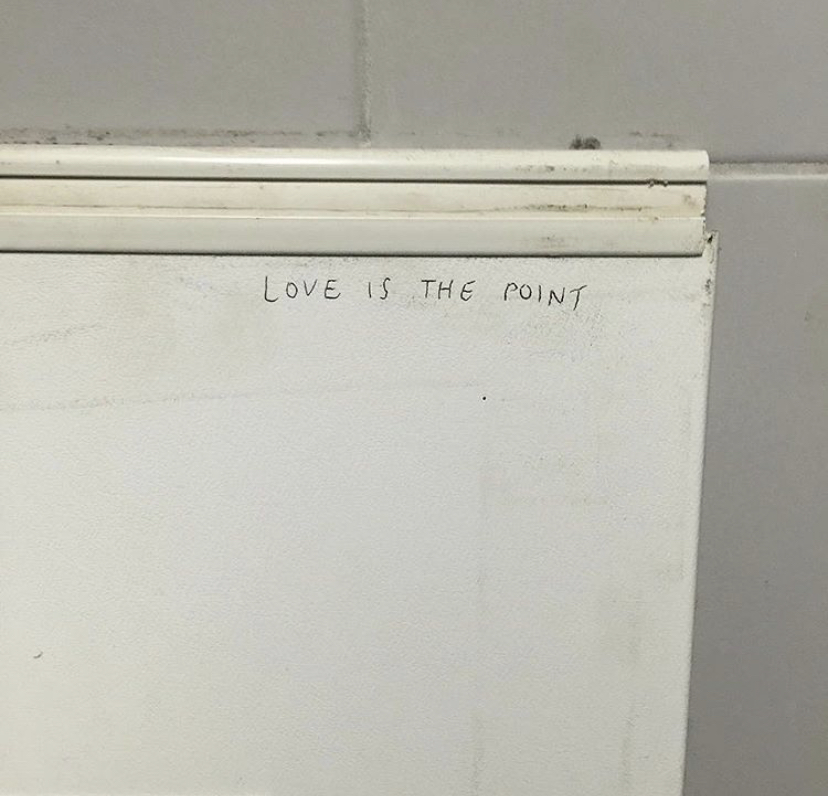 LOVE IS THE POINT